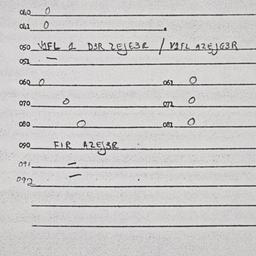 040 0
041 0
050 VIFL 1 D3R ZEJE3R / VIFL AZEJG3R
051 —
060 0 061 0
070 0 071 0
080 0 081 0
090 FIR AZEJ3R
091 —
092 —